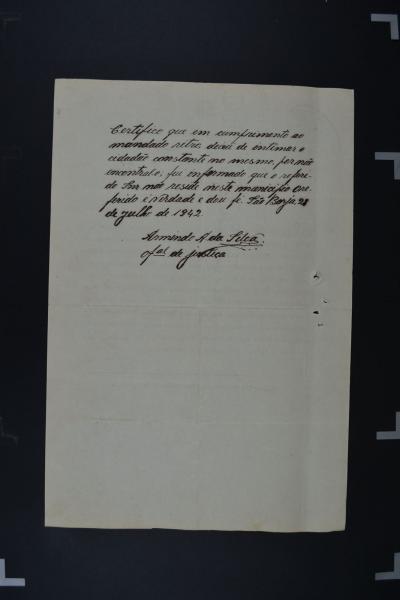 Certifico que em cumprimento ao
mandado retro, deixei de intimar o
cidadão constante no mesmo, por não
encontralo; fui enformado que o referi-
do Snr não reside neste municipio O re-
ferido é verdade e dou fé. São Borja, 21
de julho de 1942.
Armindo da Silva
Ofal de justiça